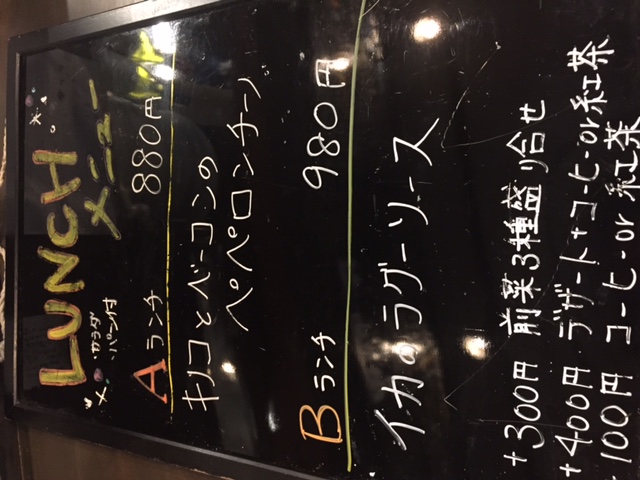 LUNCH
メニュー
サラダ
パン付
Aランチ 880円
キノコとベーコンの
ペペロンチーノ
Bランチ 980円
イカのラグーソース
+300円 前菜3種盛り合せ
+400円 デザート+コーヒーor紅茶
100円 コーヒーor紅茶